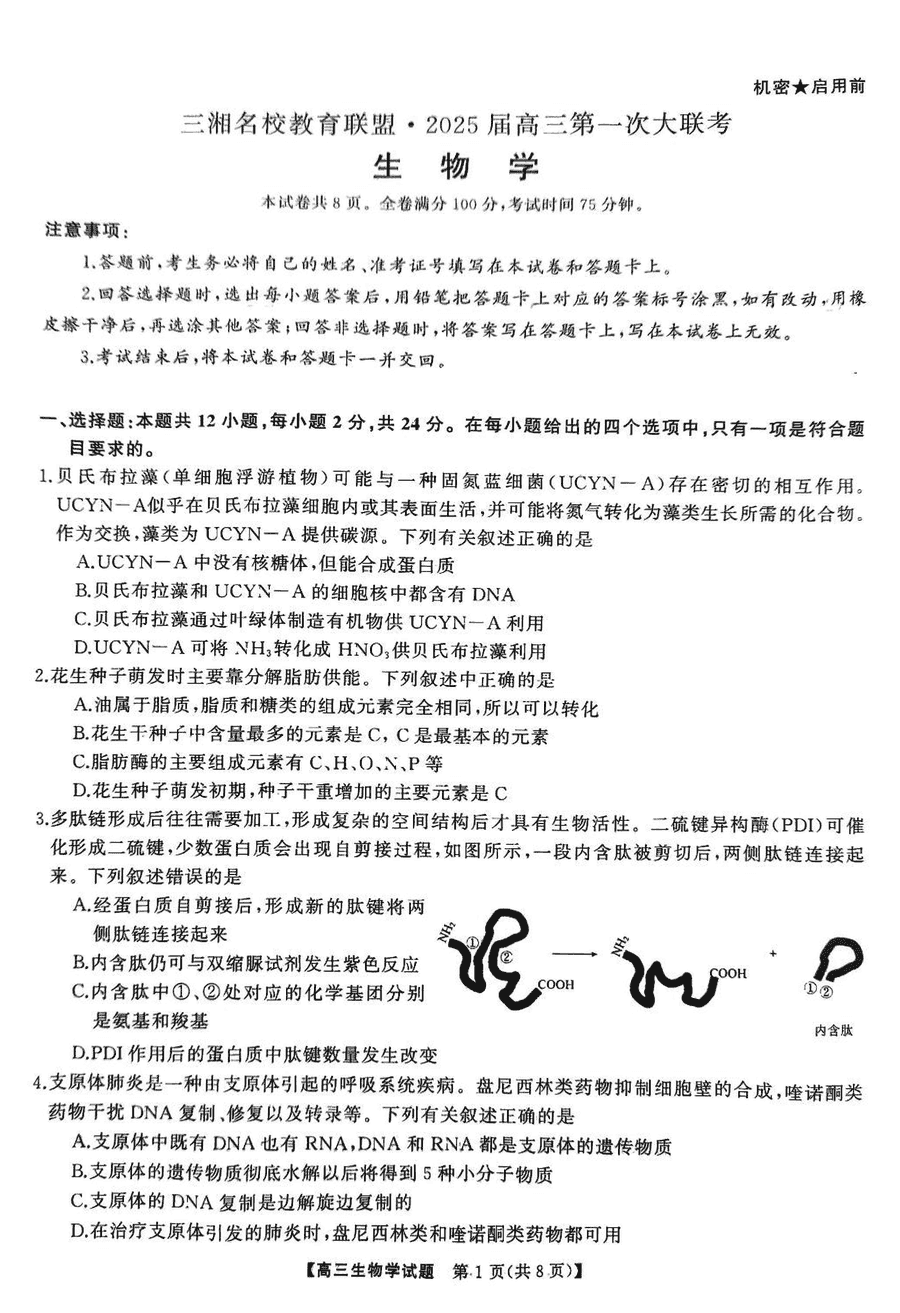 机密★启用前
三湘名校教育联盟·2025届高三第一次大联考
生 物 学
本试卷共8页。全卷满分100分,考试时间75分钟。
注意事项:
1.答题前,考生务必将自己的姓名、准考证号填写在本试卷和答题卡上。
2.回答选择题时,选出每小题答案后,用铅笔把答题卡上对应的答案标号涂黑,如有改动,用橡
皮擦干净后,再选涂其他答案;回答非选择题时,将答案写在答题卡上,写在本试卷上无效。
3.考试结束后,将本试卷和答题卡一并交回。
一、选择题:本题共12小题,每小题2分,共24分。在每小题给出的四个选项中,只有一项是符合题
目要求的。
1.贝氏布拉藻(单细胞浮游植物)可能与一种固氮蓝细菌(UCYN-A)存在密切的相互作用。
UCYN-A似乎在贝氏布拉藻细胞内或其表面生活,并可能将氮气转化为藻类生长所需的化合物。
作为交换,藻类为UCYN-A提供碳源。下列有关叙述正确的是
A.UCYN-A中没有核糖体,但能合成蛋白质
B.贝氏布拉藻和UCYN-A的细胞核中都含有DNA
C.贝氏布拉藻通过叶绿体制造有机物供UCYN-A利用
D.UCYN-A可将NH₃转化成HNO₃供贝氏布拉藻利用
2.花生种子萌发时主要靠分解脂肪供能。下列叙述中正确的是
A.油属于脂质,脂质和糖类的组成元素完全相同,所以可以转化
B.花生干种子中含量最多的元素是C,C是最基本的元素
C.脂肪酶的主要组成元素有C、H、O、N、P等
D.花生种子萌发初期,种子干重增加的主要元素是C
3.多肽链形成后往往需要加工,形成复杂的空间结构后才具有生物活性。二硫键异构酶(PDI)可催
化形成二硫键,少数蛋白质会出现自剪接过程,如图所示,一段内含肽被剪切后,两侧肽链连接起
来。下列叙述错误的是
A.经蛋白质自剪接后,形成新的肽键将两
侧肽链连接起来
B.内含肽仍可与双缩脲试剂发生紫色反应
C.内含肽中①、②处对应的化学基团分别
是氨基和羧基
D.PDI作用后的蛋白质中肽键数量发生改变
NH₂ ① ② COOH NH₂ COOH + ①②
内含肽
4.支原体肺炎是一种由支原体引起的呼吸系统疾病。盘尼西林类药物抑制细胞壁的合成,喹诺酮类
药物干扰DNA复制、修复以及转录等。下列有关叙述正确的是
A.支原体中既有DNA也有RNA,DNA和RNA都是支原体的遗传物质
B.支原体的遗传物质彻底水解以后将得到5种小分子物质
C.支原体的DNA复制是边解旋边复制的
D.在治疗支原体引发的肺炎时,盘尼西林类和喹诺酮类药物都可用
【高三生物学试题 第1页(共8页)】